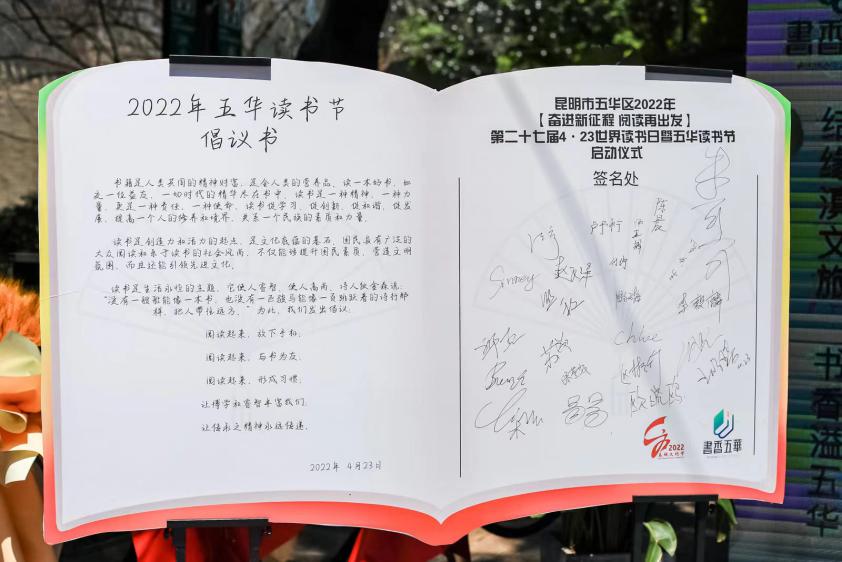 2022年五华读书节
倡议书
书籍是人类共同的精神财富，是全人类的营养品。读一本好书，如
交一位益友，一切时代的精华尽在书中。读书是一种精神，一种力
量，更是一种责任，一种使命。读书促学习，促创新，促和谐，促发
展，提高一个人的修养和境界，关系一个民族的素质和力量。
读书是创造力和活力的起点，是文化底蕴的基石。国民具有广泛的
大众阅读和乐于读书的社会风尚，不仅能够提升国民素质，营造文明
氛围，而且还能引领先进文化。
读书是生活永恒的主题，它使人睿智，使人高尚。诗人狄金森说：
“没有一艘船能像一本书，也没有一匹骏马能像一页跳跃着的诗行那
样，把人带往远方。”为此，我们发出倡议：
阅读起来，放下手机，
阅读起来，与书为友，
阅读起来，形成习惯，
让博学和睿智丰富我们，
让经典之精神永远传递。
2022年 4月23日
昆明市五华区2022年
【 奋进新征程 阅读再出发 】
第二十七届4·23世界读书日暨五华读书节
启动仪式
签名处
陈晨
Chloe
2022
书香五华
书香滇
结缘滇文旅
书香溢五华